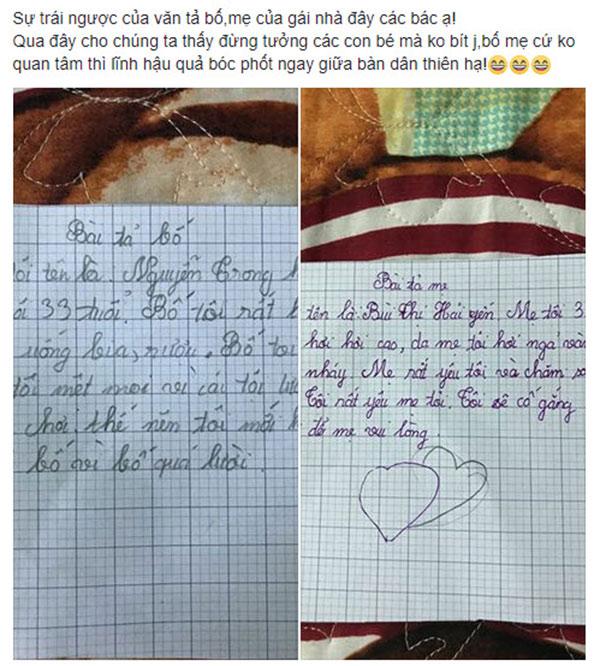 Sự trái ngược của văn tả bố,mẹ của gái nhà đây các bác ạ!
Qua đây cho chúng ta thấy đừng tưởng các con bé mà ko bít j,bố mẹ cứ ko
quan tâm thì lĩnh hậu quả bóc phốt ngay giữa bàn dân thiên hạ!😄😄😄
Bài tả bố
tên là. Nguyễn Trong
33 tuổi. Bố tôi rất
uống bia, rượu. Bố
mệt mỏi vì cái tôi
chơi thế nên tôi mới
bố vì bố quá lười.
Bài tả mẹ
tên là Bùi Thi Hải Yến. Mẹ tôi 3
hơi hơi cao, da mẹ tôi hơi ngả
nháy. Mẹ rất yêu tôi và chăm
Tôi rất yêu mẹ tôi. Tôi sẽ cố gắng
để mẹ vui lòng.